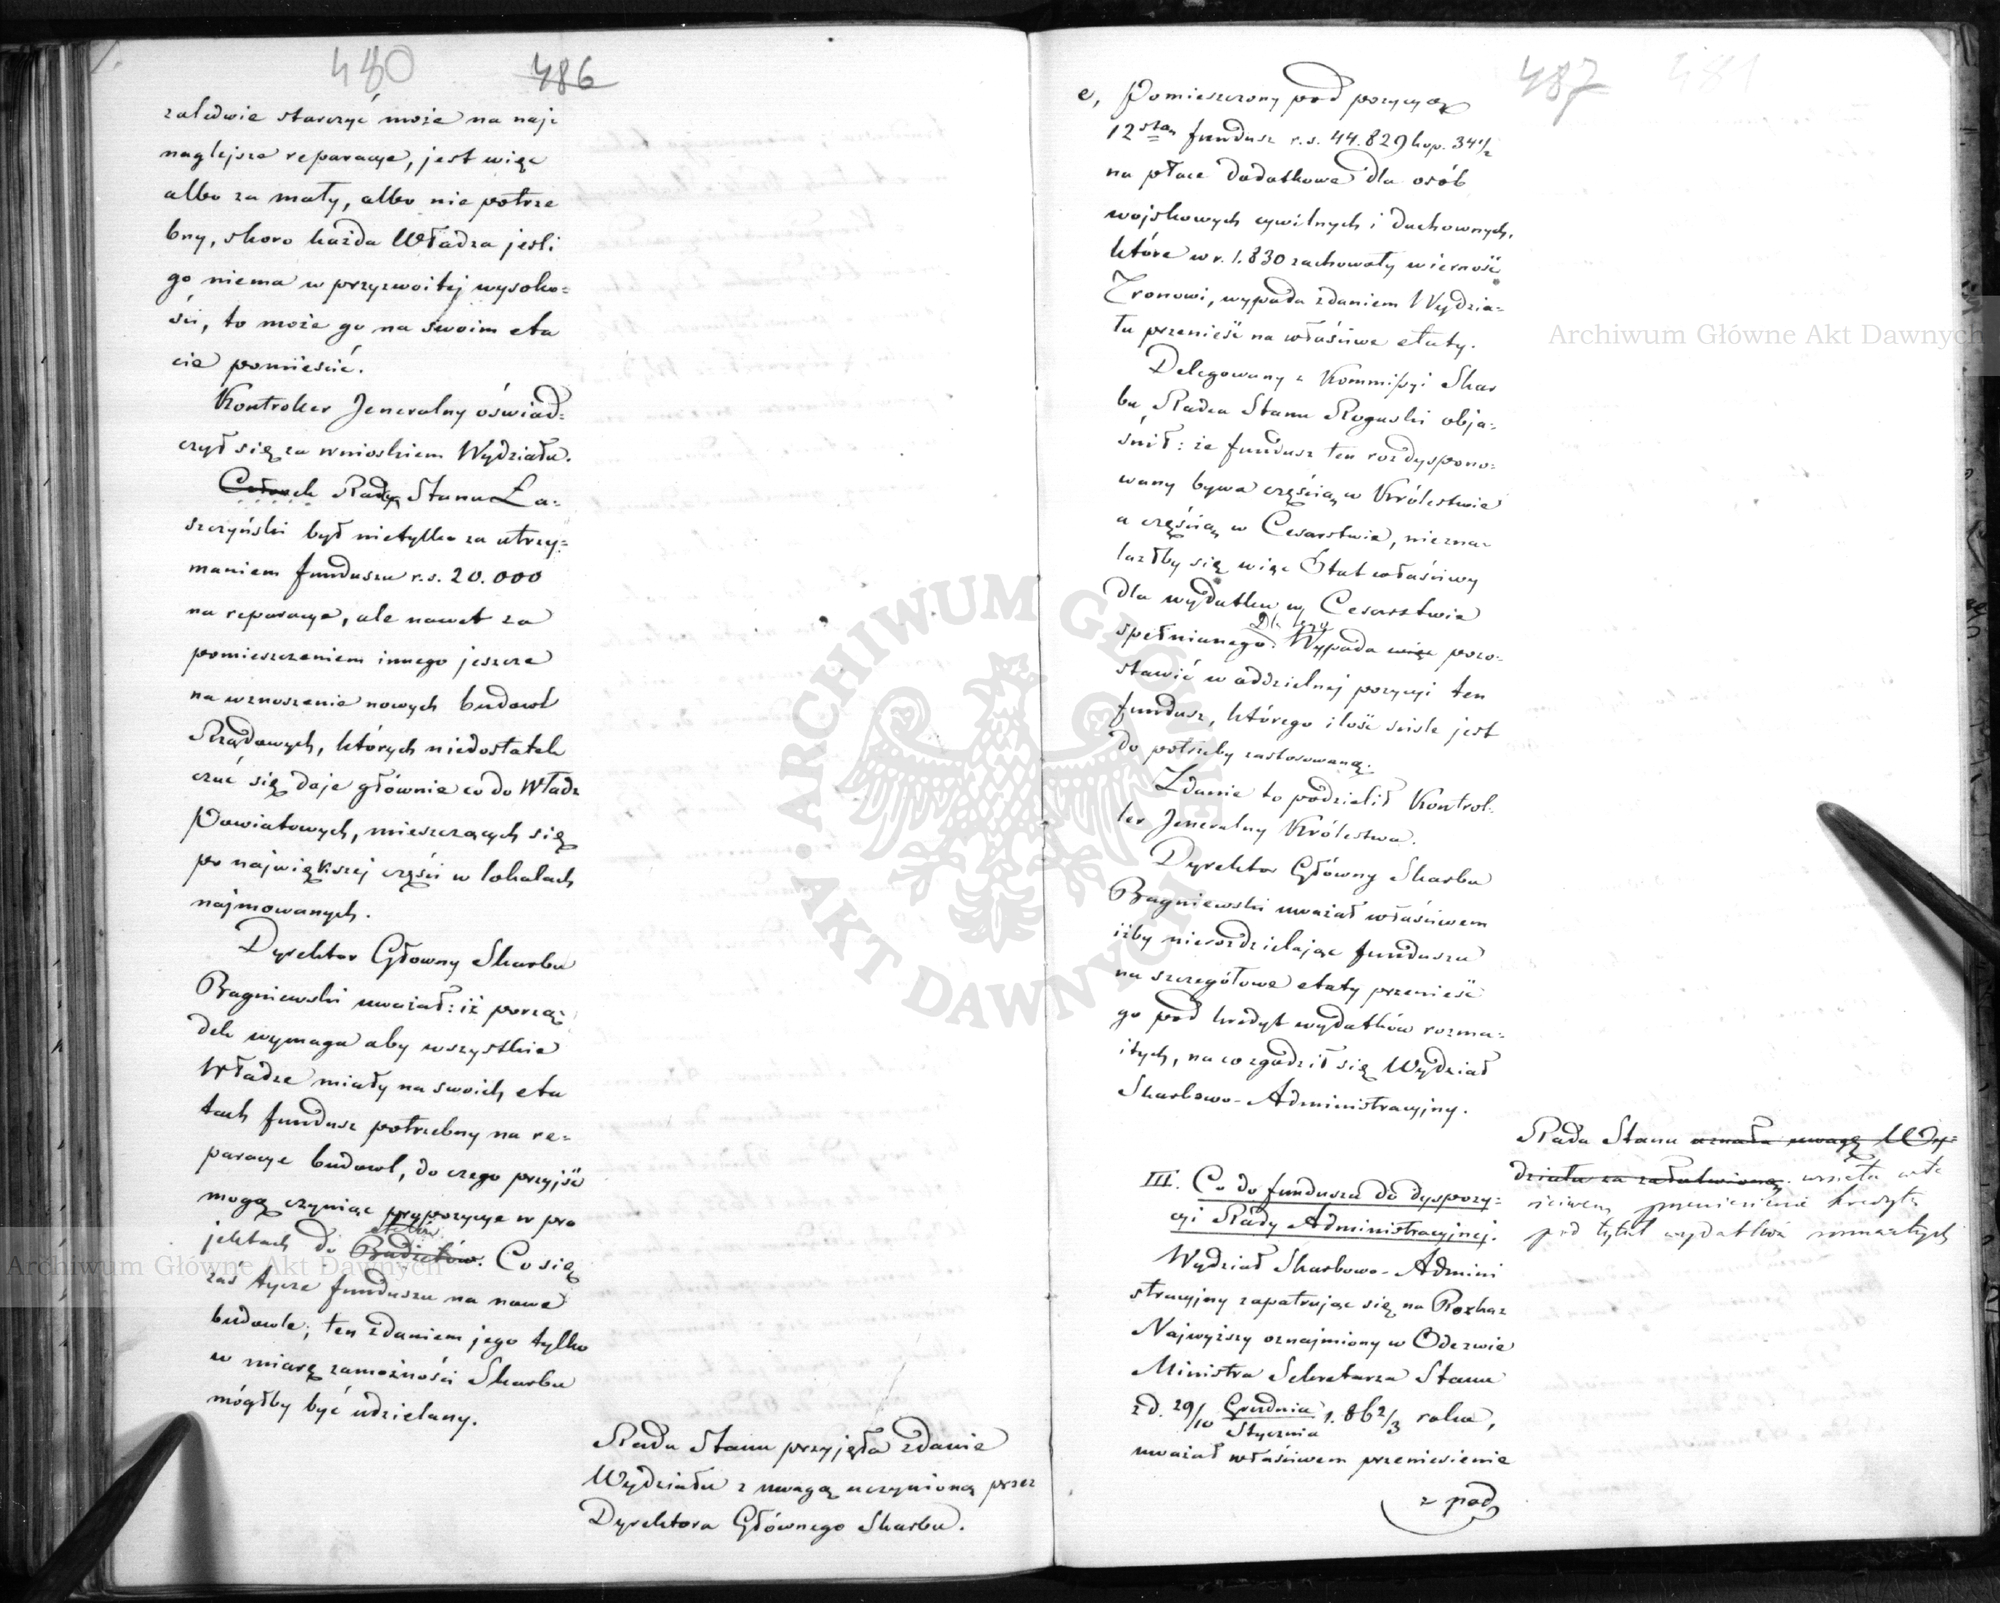 480 486
zaledwie starczyć może na naj=
naglejsze reparacye, jest więc
albo za mały, albo nie potrze
bny, skoro każda Władza jeśli
go niema w przyzwoitej wysoko=
ści, to może go na swoim eta
cie pomieścić.
Kontroler Jeneralny oświad=
czył się za wnioskiem Wydziału.
Członek Rady Stanu Ła=
szczyński był nietylko za utrzy=
maniem funduszu r.s. 20.000
na reparacye, ale nawet za
pomieszczeniem innego jeszcze
na wznoszenie nowych budowl
Rządowych, których niedostatek
czuć się daje głównie co do Władz
Powiatowych, mieszczących się
po największej części w lokalach
najmowanych.
Dyrektor Główny Skarbu
Bagniewski uważał: iż porzą=
dek wymaga aby wszystkie
Władze miały na swoich eta
tach fundusz potrzebny na re=
paracye budowl, do czego przyjść
mogą czyniąc propozycye w pro
jektach do Budżetów. Co się
etatów
zaś tycze funduszu na nowe
budowle; ten zdaniem jego tylko
w miarę zamożności Skarbu
mógłby być udzielany.
Rada Stanu przyjęła zdanie
Wydziału z uwagą uczynioną przez
Dyrektora Głównego Skarbu.
487 481
e, Pomieszczony pod pozycyą
12stą fundusz r.s. 44.829 kop. 34½
na płace dodatkowe dla osób
wojskowych cywilnych i duchownych,
które w r. 1.830 zachowały wierność
Tronowi, wypada zdaniem Wydzia=
łu przenieść na właściwe etaty.
Delegowany z Kommissyi Skar
bu, Radca Stanu Roguski obja=
śnił: że fundusz ten rozdyspono=
wany bywa częścią w Królestwie
a częścią w Cesarstwie, niezna=
lazłby się więc Etat właściwy
dla wydatku w Cesarstwie
spełnianego. Wypada więc pozo=
Dla tego
stawić w oddzielnej pozycyi ten
fundusz, którego ilość ściśle jest
do potrzeby zastosowaną.
Zdanie to podzielił Kontrol=
ler Jeneralny Królestwa.
Dyrektor Główny Skarbu
Bagniewski uważał właściwem
iżby nierozdzielając funduszu
na szczegółowe etaty przenieść
go pod kredyt wydatków rozma=
itych, na co zgodził się Wydział
Skarbowo-Administracyjny.
Rada Stanu uznała uwagę Wy=
działu za załatwioną. uznała wła
ściwem przeniesienie kredytu
pod tytuł wydatków rozmaitych
III. Co do funduszu do dyspozy=
cyi Rady Administracyjnej.
Wydział Skarbowo-Admini
stracyjny zapatrując się na Rozkaz
Najwyższy oznajmiony w Odezwie
Ministra Sekretarza Stanu
z d. 29/10 Grudnia/Stycznia 1.862/3 roku,
uważał właściwem przeniesienie
z pod
Archiwum Główne Akt Dawnych
Archiwum Główne Akt Dawnych
ARCHIWUM GŁÓWNE • AKT DAWNYCH •